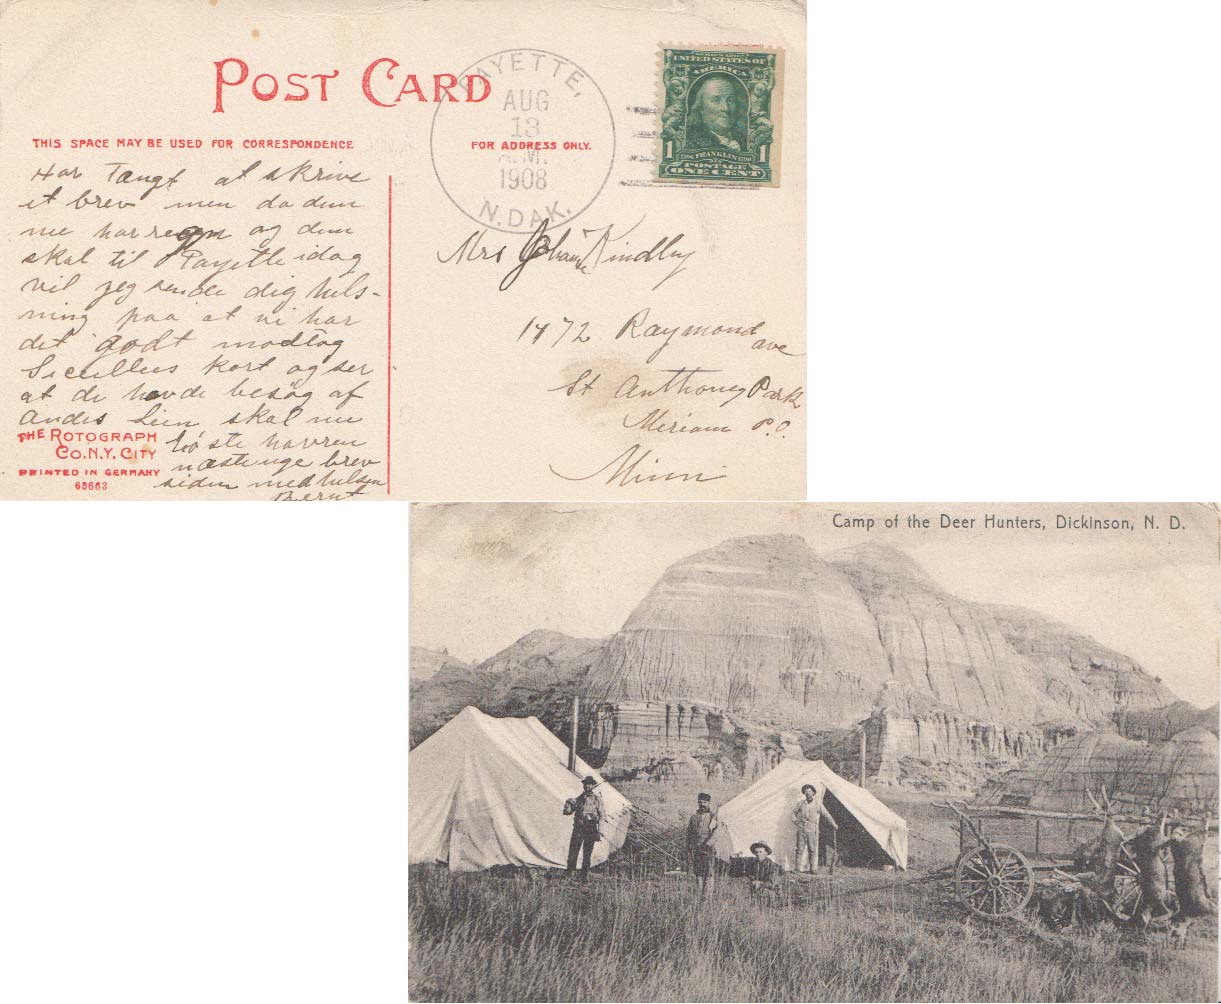 POST CARD
THIS SPACE MAY BE USED FOR CORRESPONDENCE
FOR ADDRESS ONLY.
PAYETTE,
AUG
13
A.M.
1908
N. DAK.
SERIES 1902
UNITED STATES OF
AMERICA
1 1706 FRANKLIN 1790 1
POSTAGE
ONE CENT
Har Tængt at skrive
et brev men da dem
nu har regn og dem
skal til Payette idag
vil jeg sende dig hils-
ning paa at vi har
det godt modtog
kort og ser
at de havde besög af
skal nu
höste havren
brev
siden med hilsen
Bernt
Mrs Kindlby
1472 Raymond
ave
St Anthony Park
Meriam P.O.
Minn
THE ROTOGRAPH
CO. N.Y. CITY
PRINTED IN GERMANY
63663
Camp of the Deer Hunters, Dickinson, N. D.